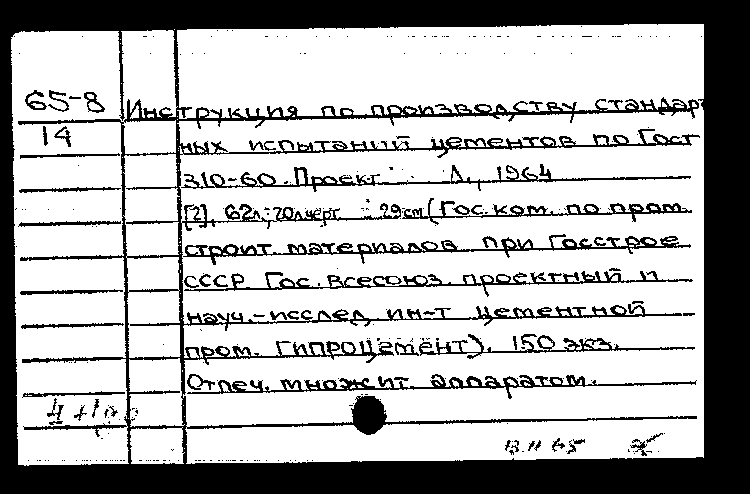 65-8 Инструкция по производству стандарт
14 ных испытаний цементов по Гост
310-60. Проект. Л., 1964
[2], 62л; 20л черт 29 cm (Гос. ком. по пром.
строит. материалов при Госстрое
СССР Гос. всесоюз. проектный и
науч.-исслед. ин-т цементной
пром. ГИПРОЦемент). 150 экз.
Отпеч. множит. аппаратом.
13.II 65